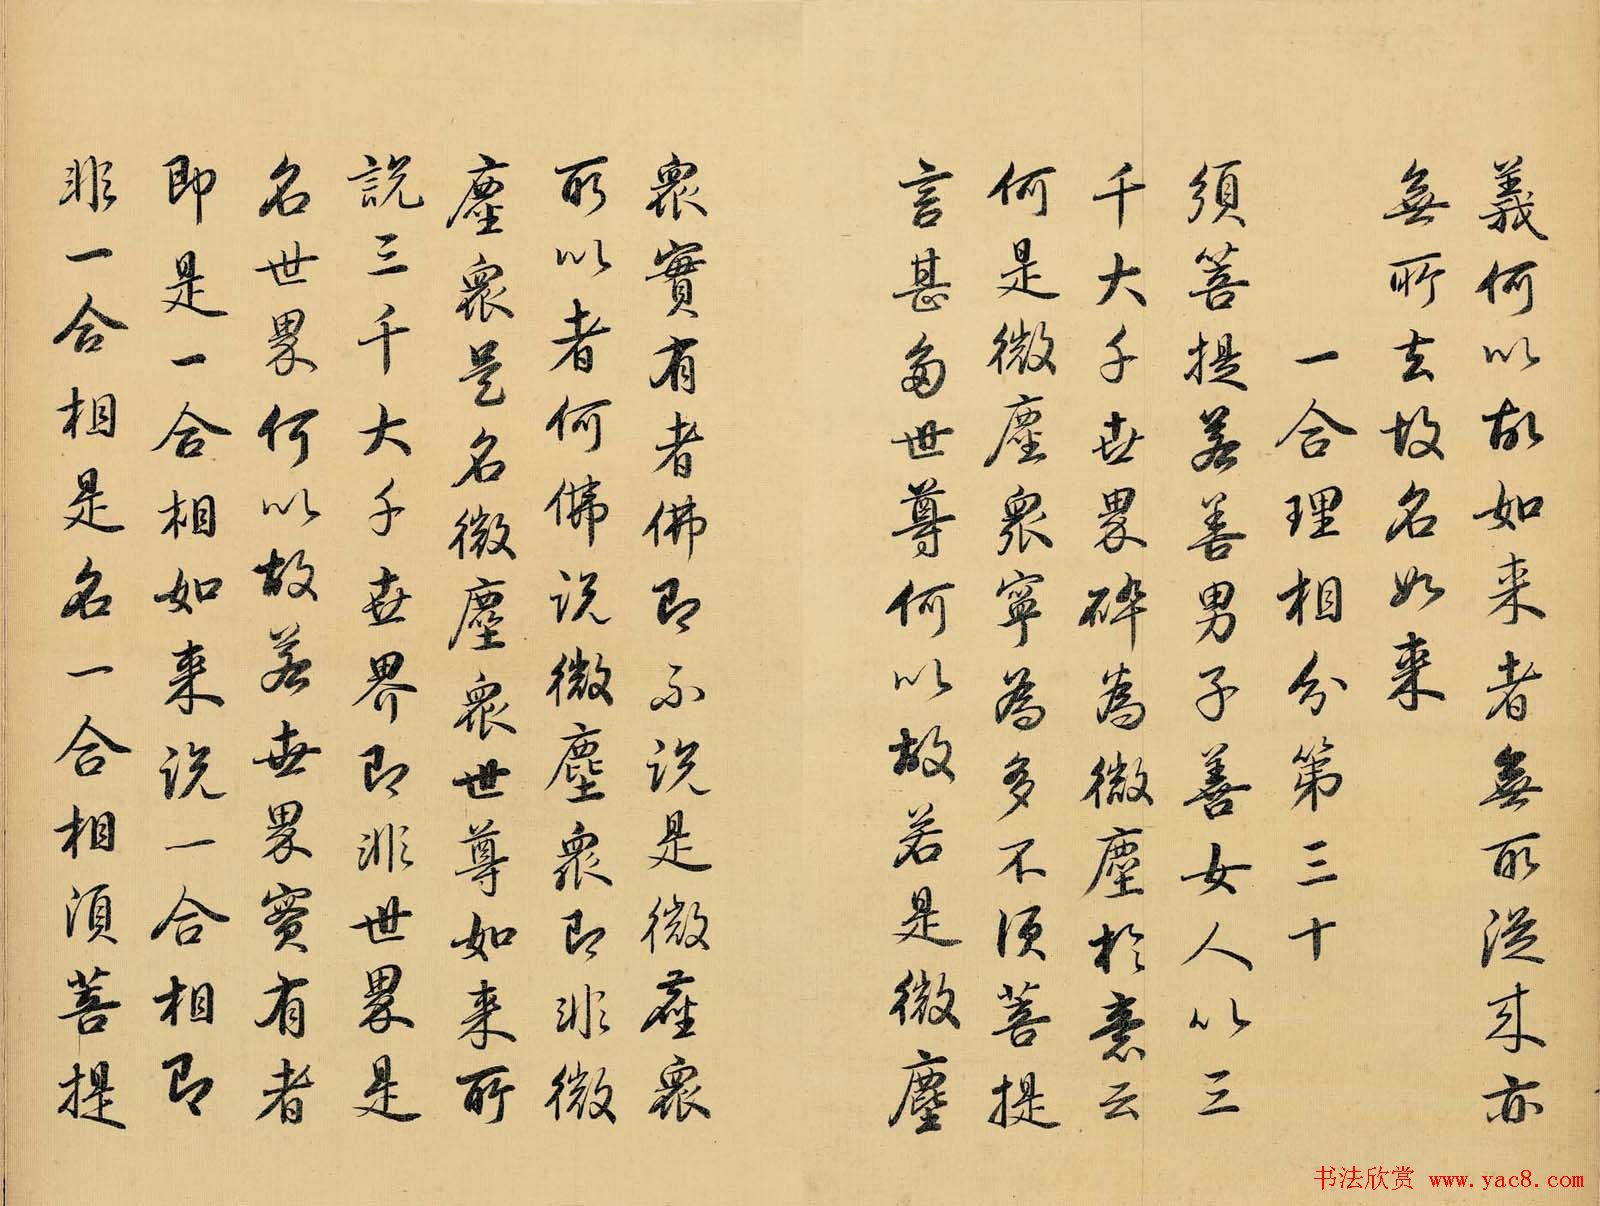 義何以故如來者無所從來亦
無所去故名如來
一合理相分第三十
須菩提若善男子善女人以三
千大千世界碎為微塵於意云
何是微塵衆寧為多不須菩提
言甚多世尊何以故若是微塵
衆實有者佛即不說是微塵衆
所以者何佛說微塵衆即非微
塵衆是名微塵衆世尊如來所
說三千大千世界即非世界是
名世界何以故若世界實有者
即是一合相如來說一合相即
非一合相是名一合相須菩提
书法欣赏 www.yac8.com